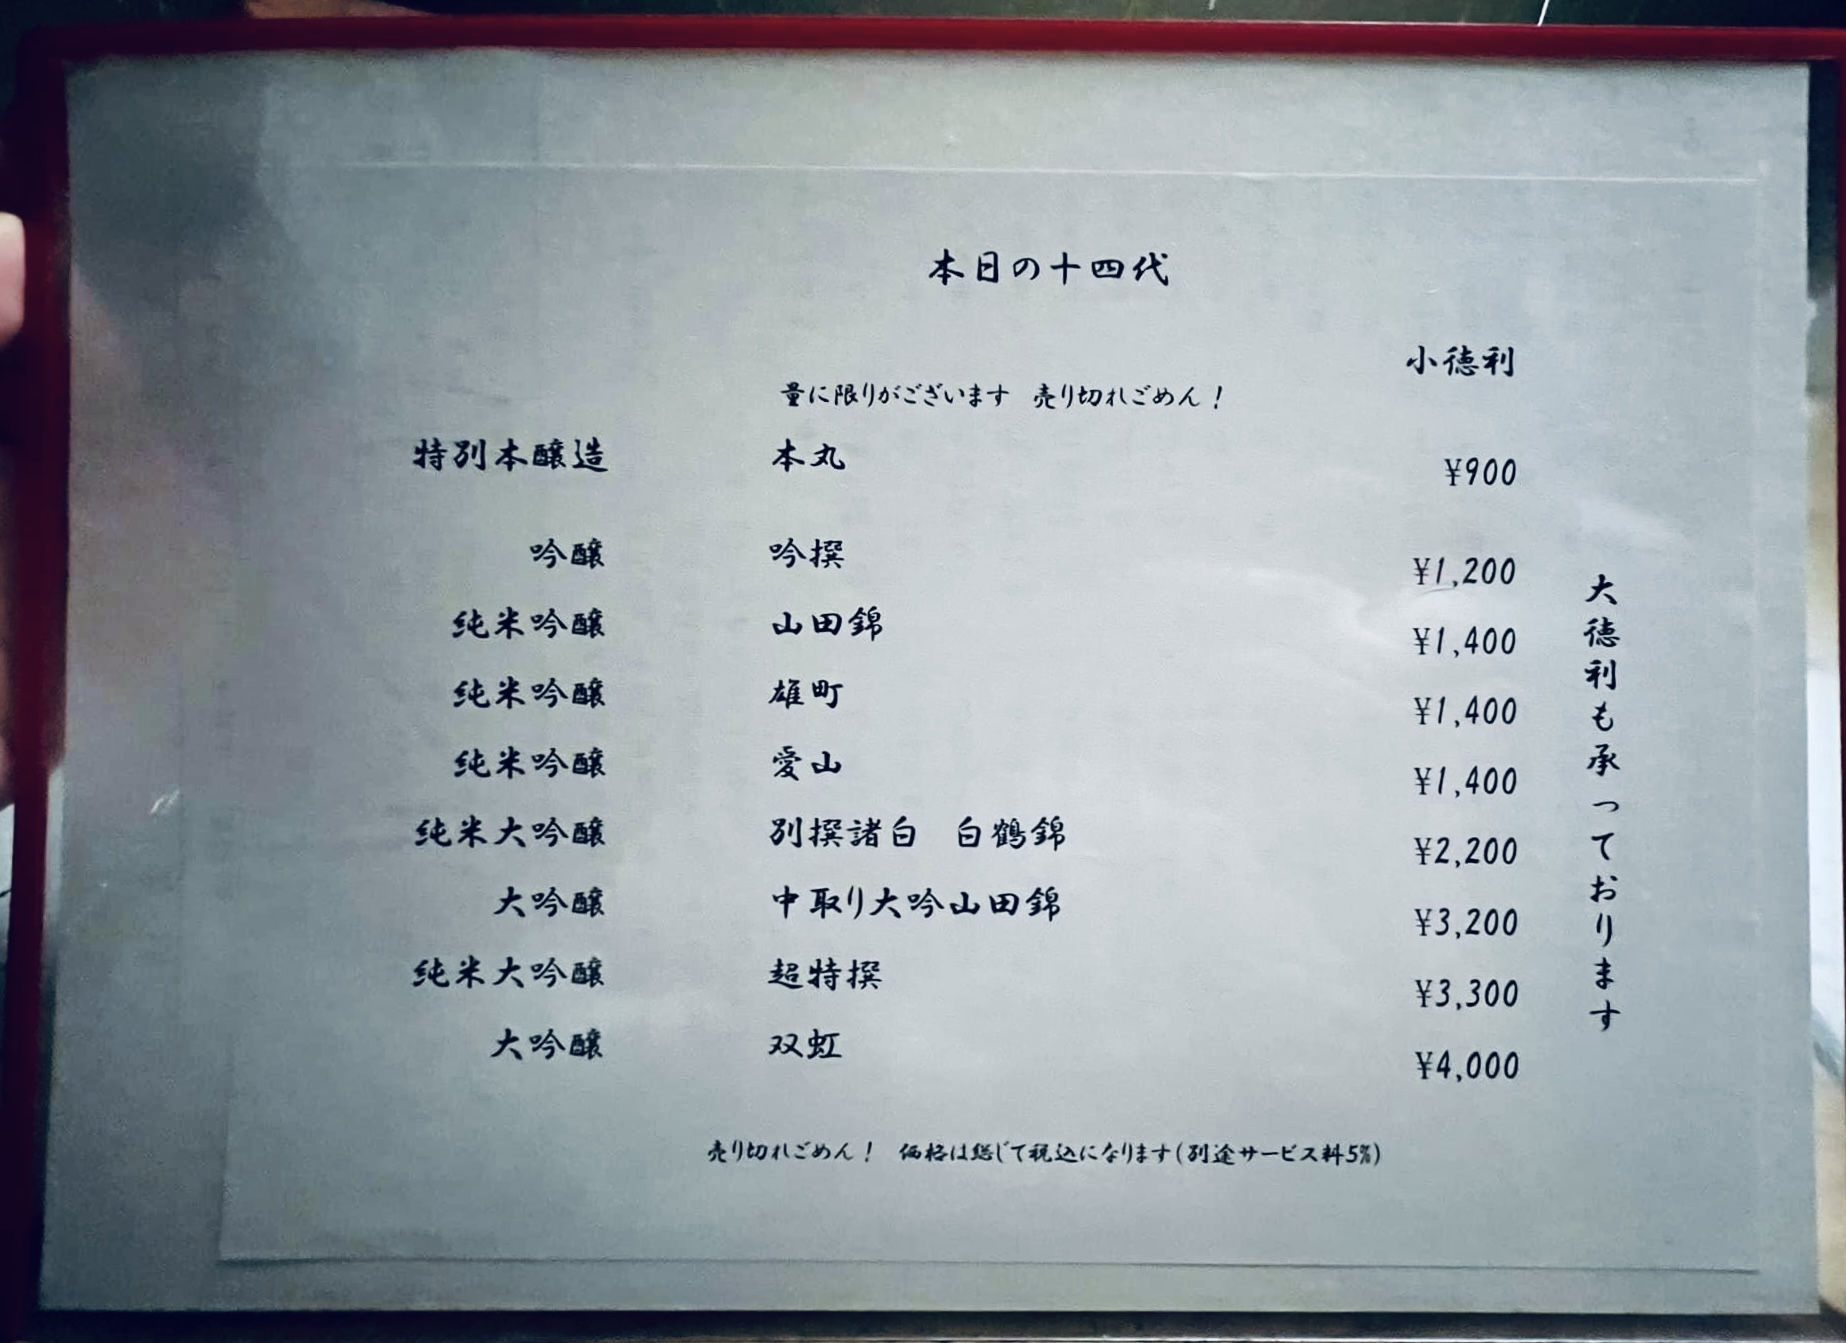 本日の十四代
小徳利
量に限りがございます 売り切れごめん!
特別本醸造 本丸 ¥900
吟醸 吟撰 ¥1,200
純米吟醸 山田錦 ¥1,400
純米吟醸 雄町 ¥1,400
純米吟醸 愛山 ¥1,400
純米大吟醸 別撰諸白 白鶴錦 ¥2,200
大吟醸 中取り大吟山田錦 ¥3,200
純米大吟醸 超特撰 ¥3,300
大吟醸 双虹 ¥4,000
大徳利も承っております
売り切れごめん! 価格は総じて税込になります(別途サービス料5%)